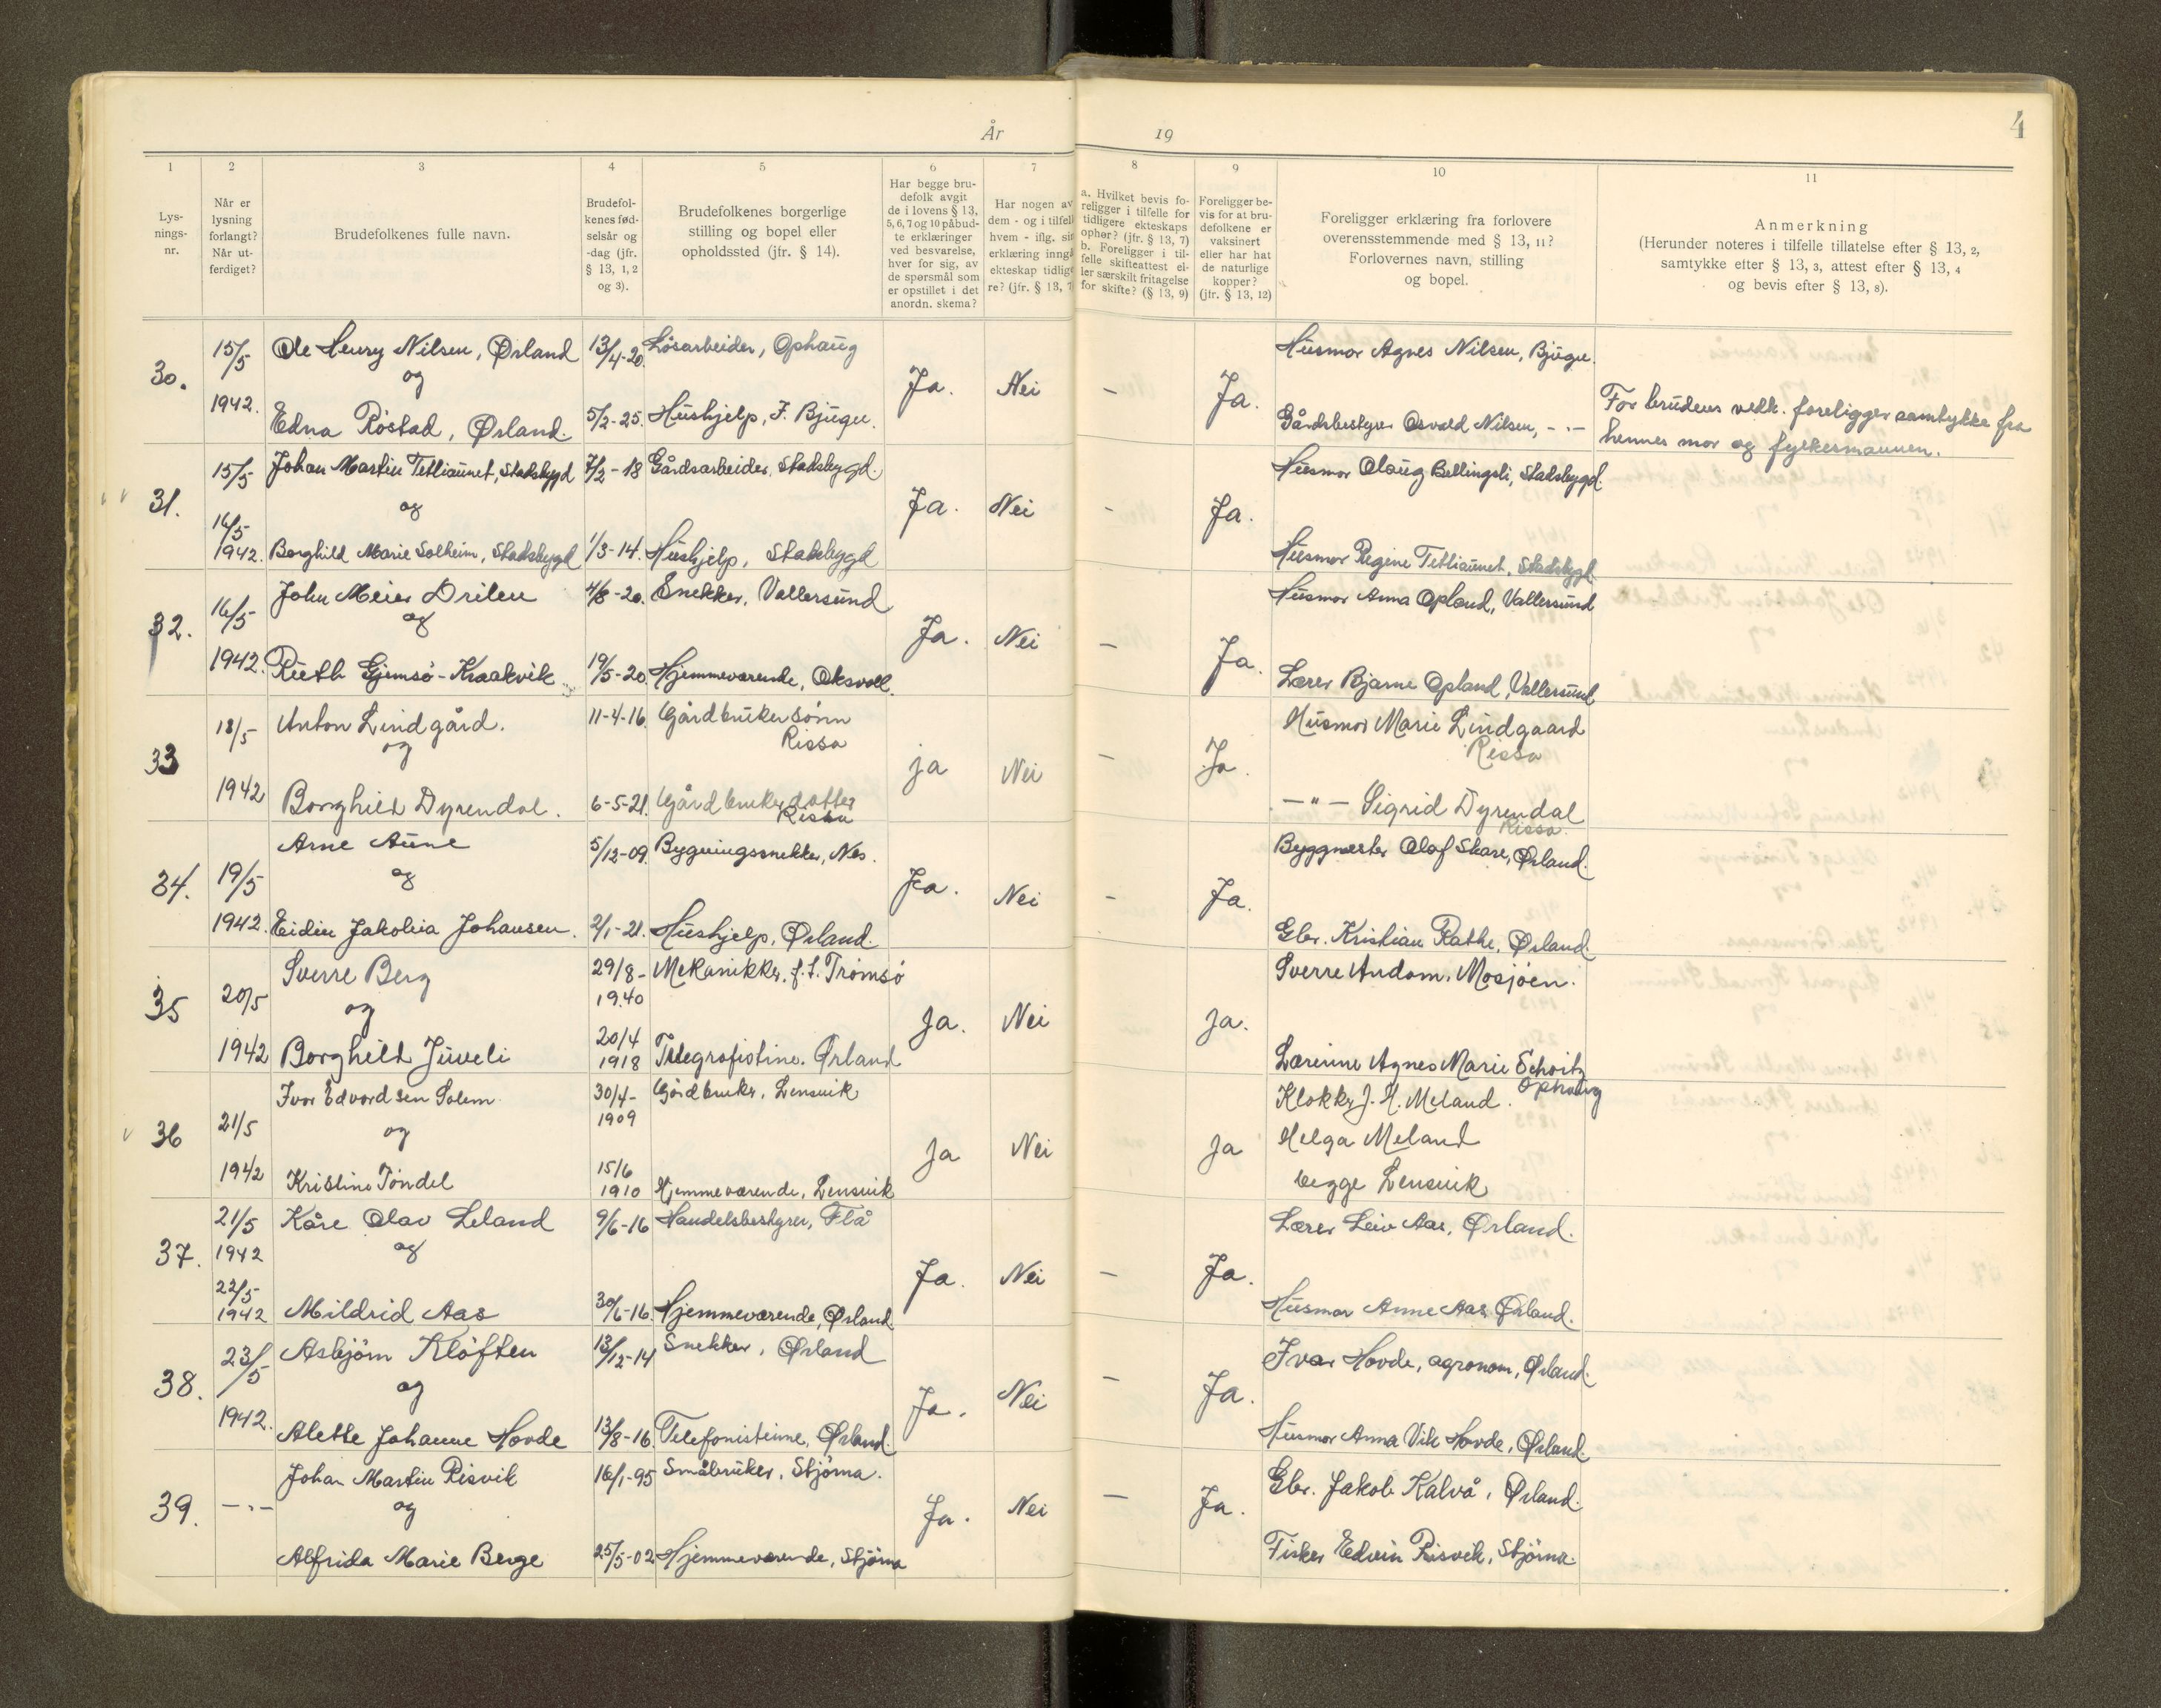 År 19
4
1 2 3 4 5 6 7 8 9 10 11
Lys-
nings-
nr.
Når er
lysning
forlangt?
Når ut-
ferdiget?
Brudefolkenes fulle navn.
Brudefol-
kenes fød-
selsår og
-dag (jfr.
§ 13, 1, 2
og 3).
Brudefolkenes borgerlige
stilling og bopel eller
opholdssted (jfr. § 14).
Har begge bru-
defolk avgit
de i lovens § 13,
5, 6, 7 og 10 påbud-
te erklæringer
ved besvarelse,
hver for sig, av
de spørsmål som
er opstillet i det
anordn. skema?
Har nogen av
dem - og i tilfell
hvem - iflg. sin
erklæring inngå
ekteskap tidlige
re? (jfr. § 13, 7
a. Hvilket bevis fo-
religger i tilfelle for
tidligere ekteskaps
ophør? (jfr. § 13, 7)
b. Foreligger i til-
felle skifteattest el-
ler særskilt fritagelse
for skifte? (§ 13, 9)
Foreligger be-
vis for at bru-
defolkene er
vaksinert
eller har hat
de naturlige
kopper?
(jfr. § 13, 12)
Foreligger erklæring fra forlovere
overensstemmende med § 13, 11?
Forlovernes navn, stilling
og bopel.
Anmerkning
(Herunder noteres i tilfelle tillatelse efter § 13, 2,
samtykke efter § 13, 3, attest efter § 13, 4
og bevis efter § 13, 8).
15/5 Ole Henry Nilsen, Ørland 13/4-20. Løsarbeider, Ophaug Husmor Agnes Nilsen, Bjugn.
30. og Ja. Nei - Ja.
1942. Edna Røstad, Ørland. 5/2-25. Hushjelp, J. Bjugn. Gårdsbestyrer Osvald Nilsen, -"-
For brudens vedk. foreligger samtykke fra
hennes mor og fylkesmannen.
15/5 Johan Martin Tetliaunet, Stadsbygd 7/2-18 Gårdsarbeider, Stadsbygd. Husmor Olaug Bellingsli, Stadsbygd.
31. og Ja. Nei - Ja.
16/5
1942. Borghild Marie Solheim, Stadsbygd 1/3-14. Hushjelp, Stadsbygd Husmor Regine Tetliaunet, Stadsbygd
16/5 John Meier Drilen 4/8-20. Snekker, Vallersund Husmor Anna Opland, Vallersund
32. og Ja. Nei - Ja.
1942. Ruth Gjemsø-Kraakvik 19/5-20. Hjemmeværende, Oksvoll. Lærer Bjarne Opland, Vallersund
18/5 Anton Lindgård. 11-4-16. Gårdbrukersønn Husmor Marie Lindgaard
Rissa Rissa
33 og ja Nei - Ja.
1942 Borghild Dyrendal. 6-5-21. Gårdbrukerdatter -"- Sigrid Dyrendal
Rissa Rissa.
Arne Aune 5/12-09. Bygningssnekker, Nes. Byggmester Olaf Skare, Ørland.
34. 19/5 og Ja. Nei - Ja.
1942. Eidin Jakobia Johansen. 2/1-21. Hushjelp, Ørland. Gbr. Kristian Rathe, Ørland.
Sverre Berg 29/8- Mekanikker, f.t. Tromsø Sverre Andom, Mosjøen.
19.40
35 20/5 og Ja. Nei Ja.
20/4
1942 Borghild Juveli 1918 Telegrafistine. Ørland Lærerinne Agnes Marie Schvitz
Ophaug
Ivar Edvardsen Solem 30/4- Gårdbruker, Lensvik Klokker J. H. Meland.
1909
36 21/5 og Ja Nei Ja Helga Meland
15/6
1942 Kristine Tøndel 1910 Hjemmeværende, Lensvik begge Lensvik
21/5 Kåre Olav Leland 9/6-16 Handelsbestyrer, Flå Lærer Leiv Aas, Ørland.
37. 1942 og Ja. Nei - Ja.
22/5
1942 Mildrid Aas 30/6-16. Hjemmeværende, Ørland Husmor Anne Aas Ørland.
23/5 Asbjørn Kløften 13/12-14 Snekker, Ørland Ivar Hovde, agronom, Ørland.
38. og Ja. Nei - Ja.
1942. Alette Johanne Hovde 13/8-16. Telefonistinne, Ørland. Husmor Anna Vik Hovde, Ørland.
Johan Martin Risvik 16/1-95 Småbruker, Stjørna. Gbr. Jakob Kalvå, Ørland.
39. -"- og Ja. Nei - Ja.
Alfrida Marie Berge 25/5-02 Hjemmeværende, Stjørna Fisker Edvin Risvik, Stjørna.